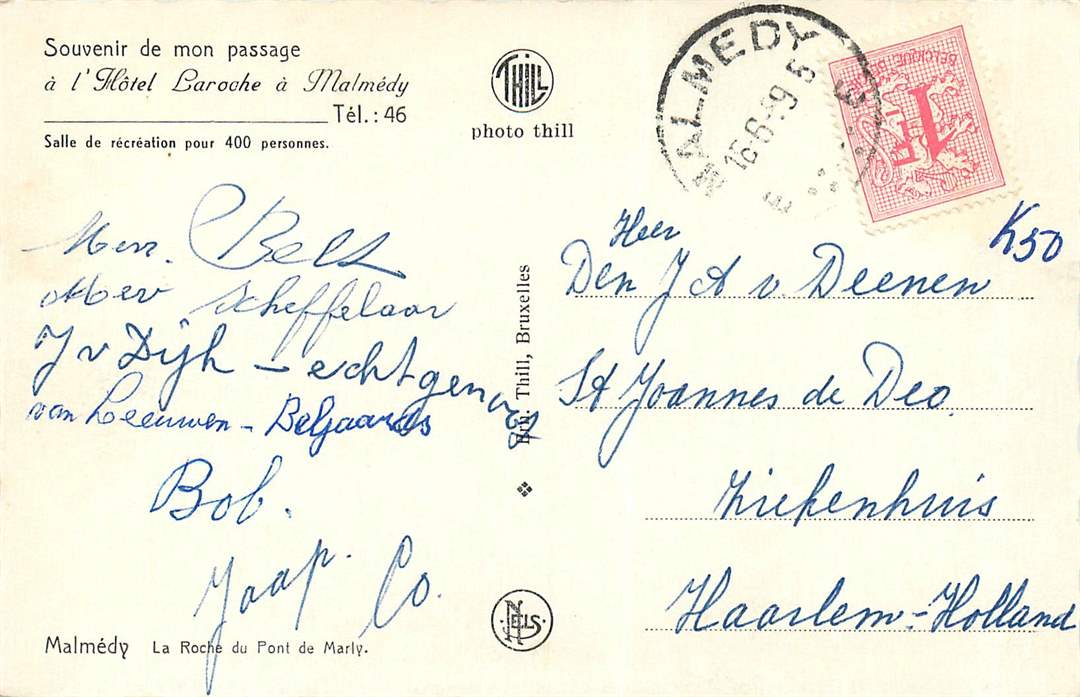 Souvenir de mon passage
à l'Hôtel Laroche à Malmédy
Tél. : 46
Salle de récréation pour 400 personnes.
THILL
photo thill
MALMEDY
16-6-59 5
BELGIQUE
1F
K50
Mevr. Bels
Mev Scheffelaar
J v Dijk - echtgenoot
van Leeuwen - Beljaards
Bob.
Jaap. Co.
Ern. Thill, Bruxelles
NELS
Heer
Den J A v Deenen
St Joannes de Deo.
Ziekenhuis
Haarlem - Holland
Malmédy La Roche du Pont de Marly.